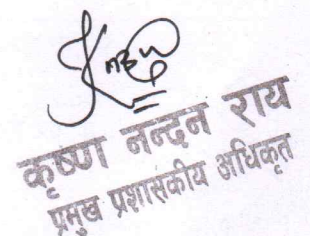 कृष्ण नन्दन राय
प्रमुख प्रशासकीय अधिकृत